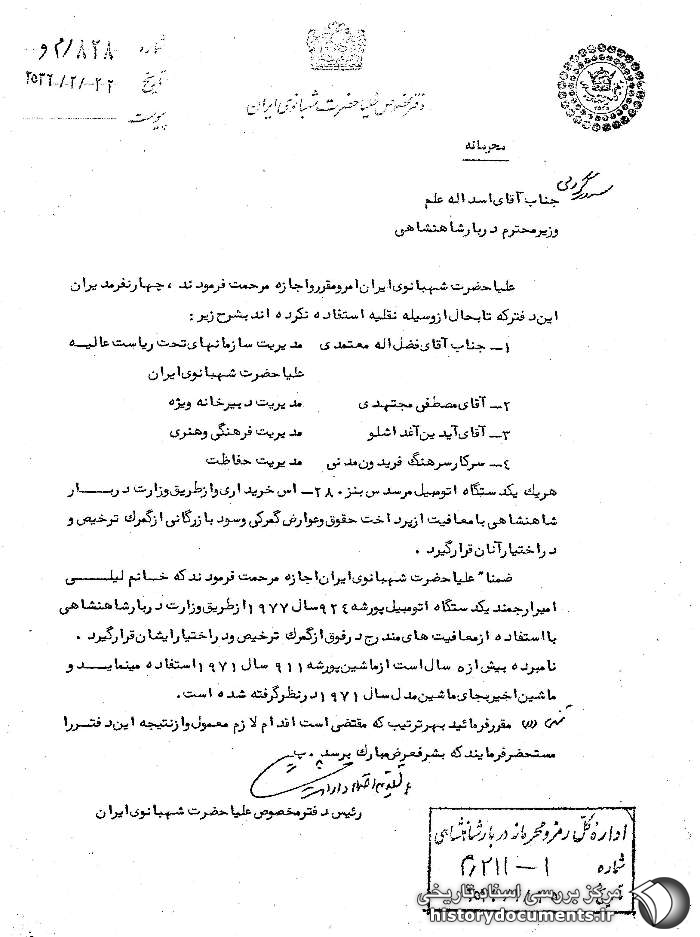 شماره ۸۲۸/م و
تاریخ ۲۵۳۶/۲/۲۲
پیوست
دفتر مخصوص علیاحضرت شهبانوی ایران
محرمانه
جناب آقای اسداله علم
وزیرمحترم دربارشاهنشاهی
علیاحضرت شهبانوی ایران امرو مقررو اجازه مرحمت فرمودند ، چهارنفرمدیران
این دفترکه تابحال ازوسیله نقلیه استفاده نکرده اند بشرح زیر :
۱ــ جناب آقای فضل اله معتمدی مدیریت سازمانهای تحت ریاست عالیه
علیاحضرت شهبانوی ایران
۲ــ آقای مصطفی مجتهدی مدیریت دبیرخانه ویژه
۳ــ آقای آیدین آغداشلو مدیریت فرهنگی وهنری
۴ــ سرکارسرهنگ فریدون مدنی مدیریت حفاظت
هریك یكدستگاه اتومبیل مرسدس بنز ۲۸۰ــ اس خریداری وازطریق وزارت دربــار
شاهنشاهی بامعافیت ازپرداخت حقوق وعوارض گمرکی وسود بازرگانی ازگمرك ترخیص و
دراختیارآنان قرارگیرد .
ضمنا" علیاحضرت شهبانوی ایران اجازه مرحمت فرمودند که خانم لیلــی
امیرارجمند یكدستگاه اتومبیل پورشه ۹۲۴ سال ۱۹۷۷ ازطریق وزارت دربارشاهنشاهی
بااستفاده ازمعافیت های مندرج درفوق ازگمرك ترخیص ودراختیارایشان قرارگیرد .
نامبرده بیش از ۵ سال است ازماشین پورشه ۹۱۱ سال ۱۹۷۱ استفاده مینمایــد و
ماشین اخیربجای ماشین مدل سال ۱۹۷۱ درنظرگرفته شده است .
مقررفرمائید بهرترتیب که مقتضی است اقدام لازم معمول وازنتیجه این دفتــررا
مستحضرفرمایند که بشرفعرض مبارك برسد .
رئیس دفترمخصوص علیاحضرت شهبانوی ایران
اداره کل رمز و محرمانه دربار شاهنشاهی
شماره ۱-۲۱۱/م
مرکز بررسی اسناد تاریخی
historydocuments.ir